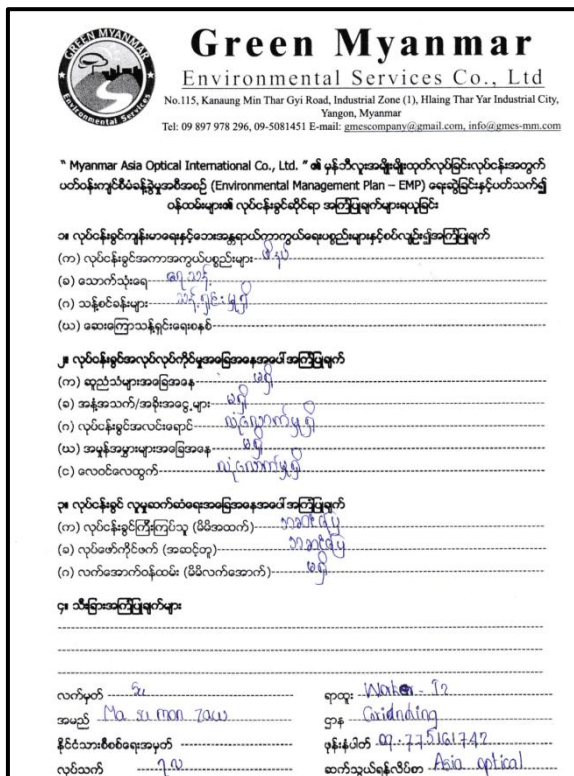 GREEN MYANMAR
Environmental Services
Green Myanmar
Environmental Services Co., Ltd
No.115, Kanaung Min Thar Gyi Road, Industrial Zone (1), Hlaing Thar Yar Industrial City,
Yangon, Myanmar
Tel: 09 897 978 296, 09-5081451 E-mail: gmescompany@gmail.com, info@gmes-mm.com
" Myanmar Asia Optical International Co., Ltd. " ၏ မှန်ဘီလူးအမျိုးမျိုးထုတ်လုပ်ခြင်းလုပ်ငန်းအတွက်
ပတ်ဝန်းကျင်စီမံခန့်ခွဲမှုအစီအစဉ် (Environmental Management Plan – EMP) ရေးဆွဲခြင်းနှင့်ပတ်သက်၍
ဝန်ထမ်းများ၏ လုပ်ငန်းခွင်ဆိုင်ရာ အကြံပြုချက်များရယူခြင်း
၁။ လုပ်ငန်းခွင်ကျန်းမာရေးနှင့်ဘေးအန္တရာယ်ကာကွယ်ရေးပစ္စည်းများနှင့်စပ်လျဉ်း၍အကြံပြုချက်
(က) လုပ်ငန်းခွင်အကာအကွယ်ပစ္စည်းများ ဖိနပ်
(ခ) သောက်သုံးရေ ရေသန့်
(ဂ) သန့်စင်ခန်းများ သန့်ရှင်းမှုရှိ
(ဃ) ဆေးကြောသန့်ရှင်းရေးစနစ်
၂။ လုပ်ငန်းခွင်အလုပ်လုပ်ကိုင်မှုအခြေအနေအပေါ် အကြံပြုချက်
(က) ဆူညံသံများအခြေအနေ မရှိ
(ခ) အနံ့အသက်/အခိုးအငွေ့များ မရှိ
(ဂ) လုပ်ငန်းခွင်အလင်းရောင် လုံလောက်မှုရှိ
(ဃ) အမှုန်အမွှားများအခြေအနေ မရှိ
(င) လေဝင်လေထွက် လုံလောက်မှုရှိ
၃။ လုပ်ငန်းခွင် လူမှုဆက်ဆံရေးအခြေအနေအပေါ် အကြံပြုချက်
(က) လုပ်ငန်းခွင်ကြီးကြပ်သူ (မိမိအထက်) အဆင်ပြေ
(ခ) လုပ်ဖော်ကိုင်ဖက် (အဆင့်တူ) အဆင်ပြေ
(ဂ) လက်အောက်ဝန်ထမ်း (မိမိလက်အောက်) မရှိ
၄။ သီးခြားအကြံပြုချက်များ
လက်မှတ် Su
ရာထူး Worker - T2
အမည် Ma su mon zaw
ဌာန
နိုင်ငံသားစိစစ်ရေးအမှတ်
ဖုန်းနံပါတ် 09-775161742
လုပ်သက် ၃လ
ဆက်သွယ်ရန်လိပ်စာ Asia optical